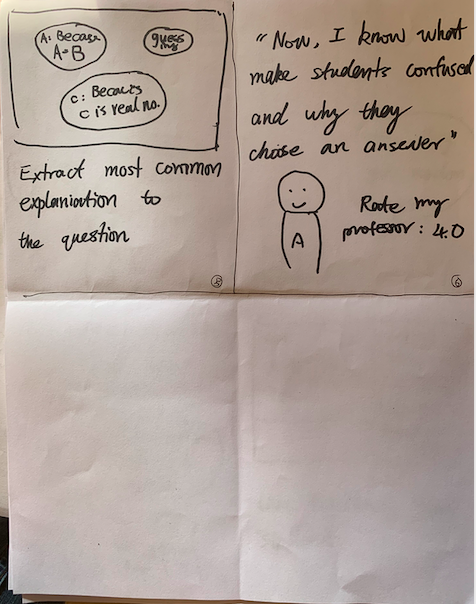 A: Because
A=B
guess
ing
C: Becaus
C is real no.
Extract most common
explaniation to
the question
5
"Now, I know what
make students confused
and why they
chose an answer"
A
Rate my
professor: 4.0
6